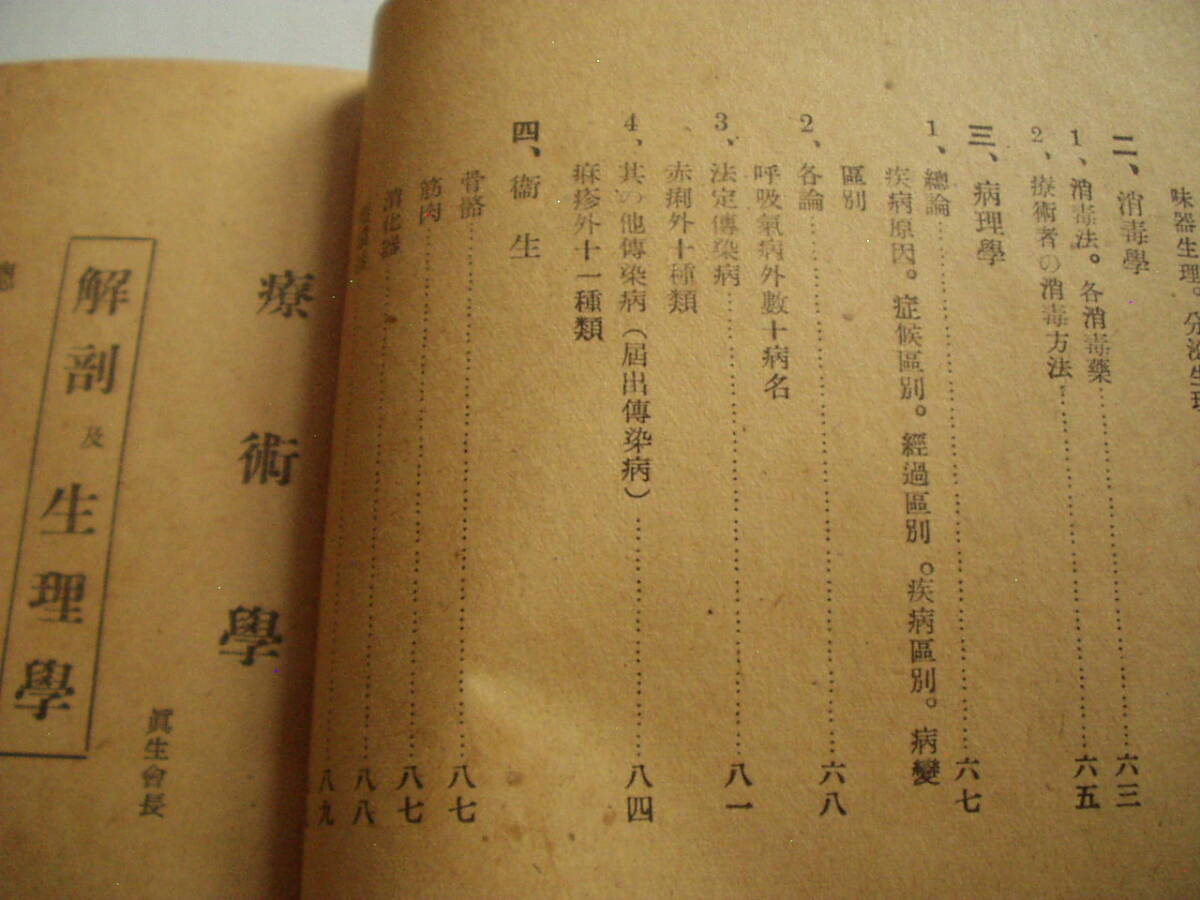 味器生理。分泌生理
二、消毒學
1、消毒法。各消毒藥……六三
2、療術者の消毒方法……六五
三、病理學
1、總論……六七
疾病原因。症候區別。經過區別。疾病區別。病變
區別
2、各論……六八
呼吸氣病外數十病名
3、法定傳染病……八一
赤痢外十種類
4、其の他傳染病（屆出傳染病）……八四
麻疹外十一種類
四、衞生
骨骼……八七
筋肉……八七
消化器……八八
……八九
療術學
眞生會長
解剖及生理學